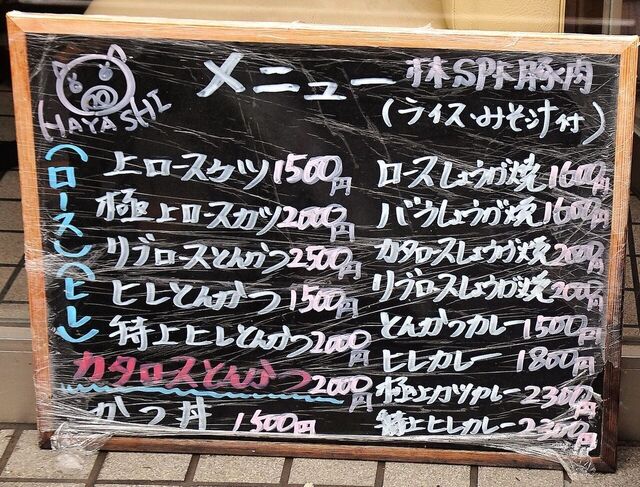 HAYASHI
メニュー
林SPF豚肉
(ライス・みそ汁付)
(ロース)
上ロースカツ1500円
極上ロースカツ2000円
リブロースとんかつ2500円
(ヒレ)
ヒレとんかつ1500円
特上ヒレとんかつ2000円
カタロスとんかつ2000円
かつ丼 1500円
ロースしょうが焼1600円
バラしょうが焼1600円
カタロスしょうが焼2000円
リブロースしょうが焼2000円
とんかつカレー1500円
ヒレカレー1800円
極上カツカレー2300円
特上ヒレカレー2300円